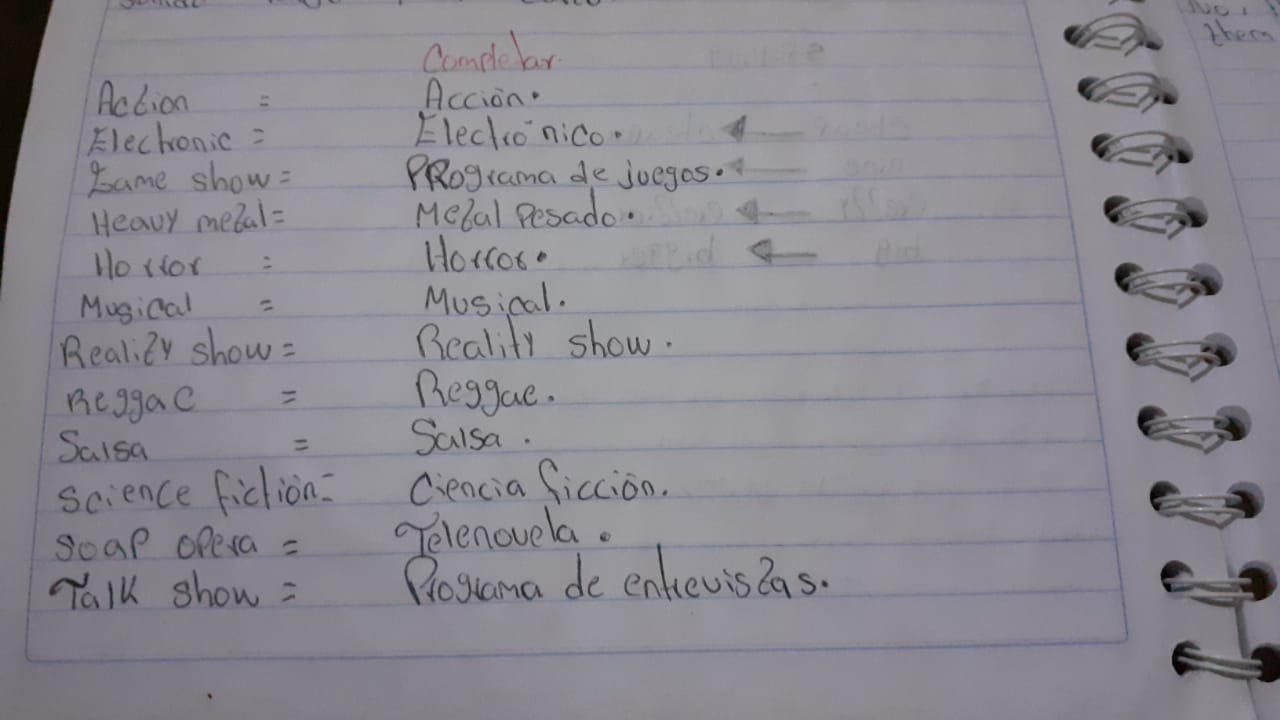 Completar.
Action = Acción.
Electronic = Electrónico.
Game show = PROgrama de juegos.
Heavy metal = Metal Pesado.
Horror = Horror.
Musical = Musical.
Reality show = Reality show.
Reggae = Reggae.
Salsa = Salsa.
Science fiction = Ciencia ficción.
Soap opera = Telenovela.
Talk show = Programa de entrevistas.
No,
them